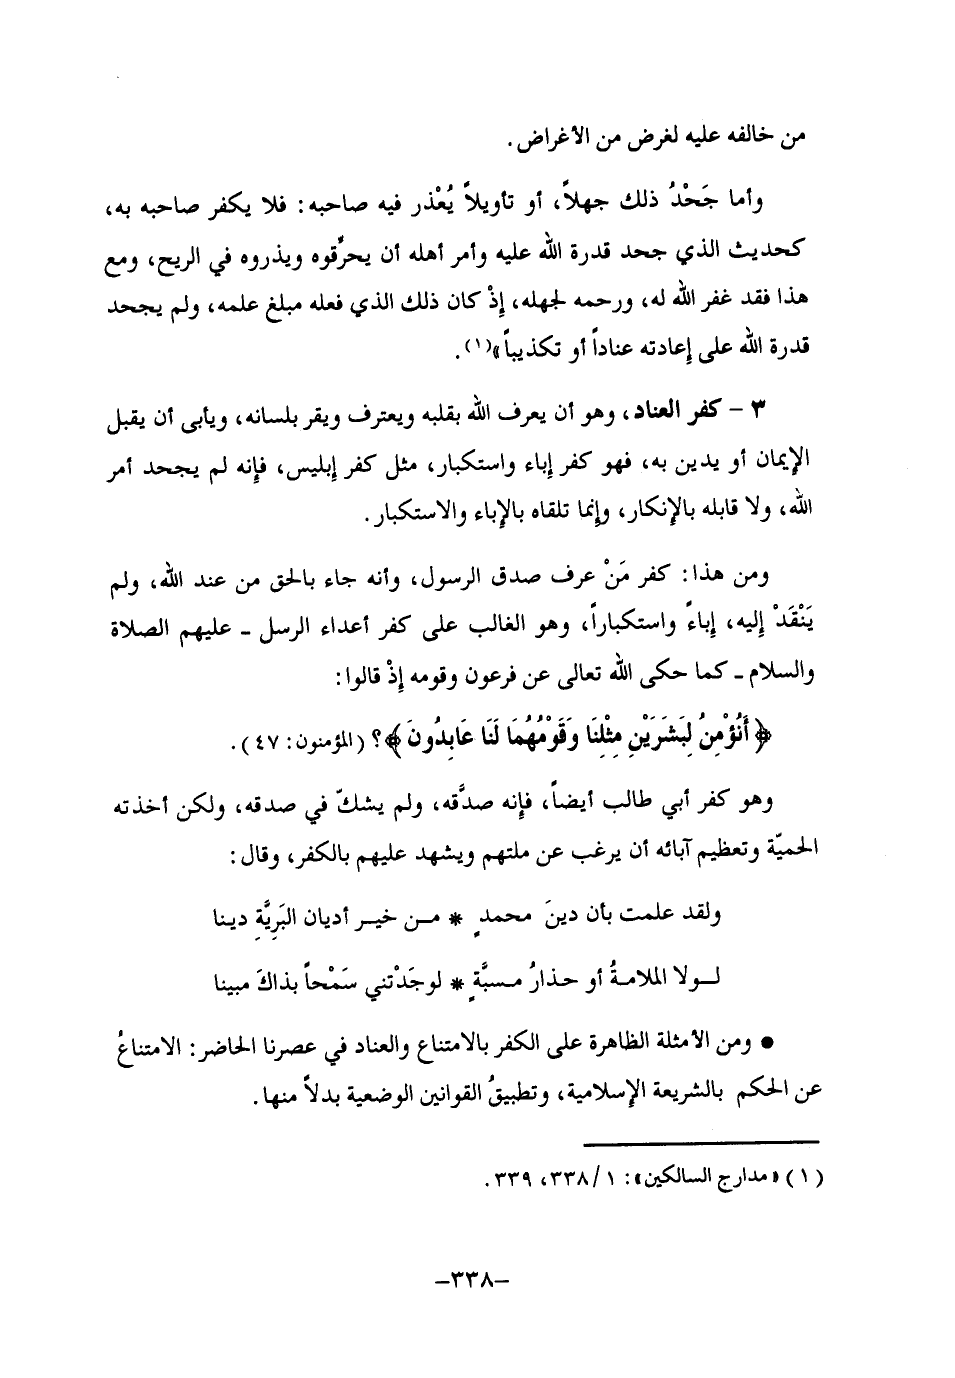 من خالفه عليه لغرض من الأغراض.
وأما جَحْدُ ذلك جهلاً، أو تأويلاً يُعْذر فيه صاحبه: فلا يكفر صاحبه به،
كحديث الذي جحد قدرة الله عليه وأمر أهله أن يحرِّقوه ويذروه في الريح، ومع
هذا فقد غفر الله له، ورحمه لجهله، إذْ كان ذلك الذي فعله مبلغ علمه، ولم يجحد
قدرة الله على إعادته عناداً أو تكذيباً»(١).
٣ – كفر العناد، وهو أن يعرف الله بقلبه ويعترف ويقر بلسانه، ويأبى أن يقبل
الإيمان أو يدين به، فهو كفر إباء واستكبار، مثل كفر إبليس، فإنه لم يجحد أمر
الله، ولا قابله بالإنكار، وإنما تلقاه بالإباء والاستكبار.
ومن هذا: كفر مَنْ عرف صدق الرسول، وأنه جاء بالحق من عند الله، ولم
يَنْقَدْ إليه، إباءً واستكباراً، وهو الغالب على كفر أعداء الرسل ـ عليهم الصلاة
والسلام ـ كما حكى الله تعالى عن فرعون وقومه إذْ قالوا:
﴿أَنُؤْمِنُ لِبَشَرَيْنِ مِثْلِنَا وَقَوْمُهُمَا لَنَا عَابِدُونَ﴾؟ (المؤمنون: ٤٧).
وهو كفر أبي طالب أيضاً، فإنه صدَّقه، ولم يشكّ في صدقه، ولكن أخذته
الحميّة وتعظيم آبائه أن يرغب عن ملتهم ويشهد عليهم بالكفر، وقال:
ولقد علمت بأن دينَ محمدٍ * مـن خيـر أديان البَرِيَّةِ دينا
لـولا الملامـةُ أو حـذارُ مـسبَّةٍ * لوجَدْتني سَمْحاً بذاكَ مبينا
● ومن الأمثلة الظاهرة على الكفر بالامتناع والعناد في عصرنا الحاضر: الامتناعُ
عن الحكم بالشريعة الإسلامية، وتطبيقُ القوانين الوضعية بدلاً منها.
(١) «مدارج السالكين»: ١/ ٣٣٨، ٣٣٩.
–٣٣٨–